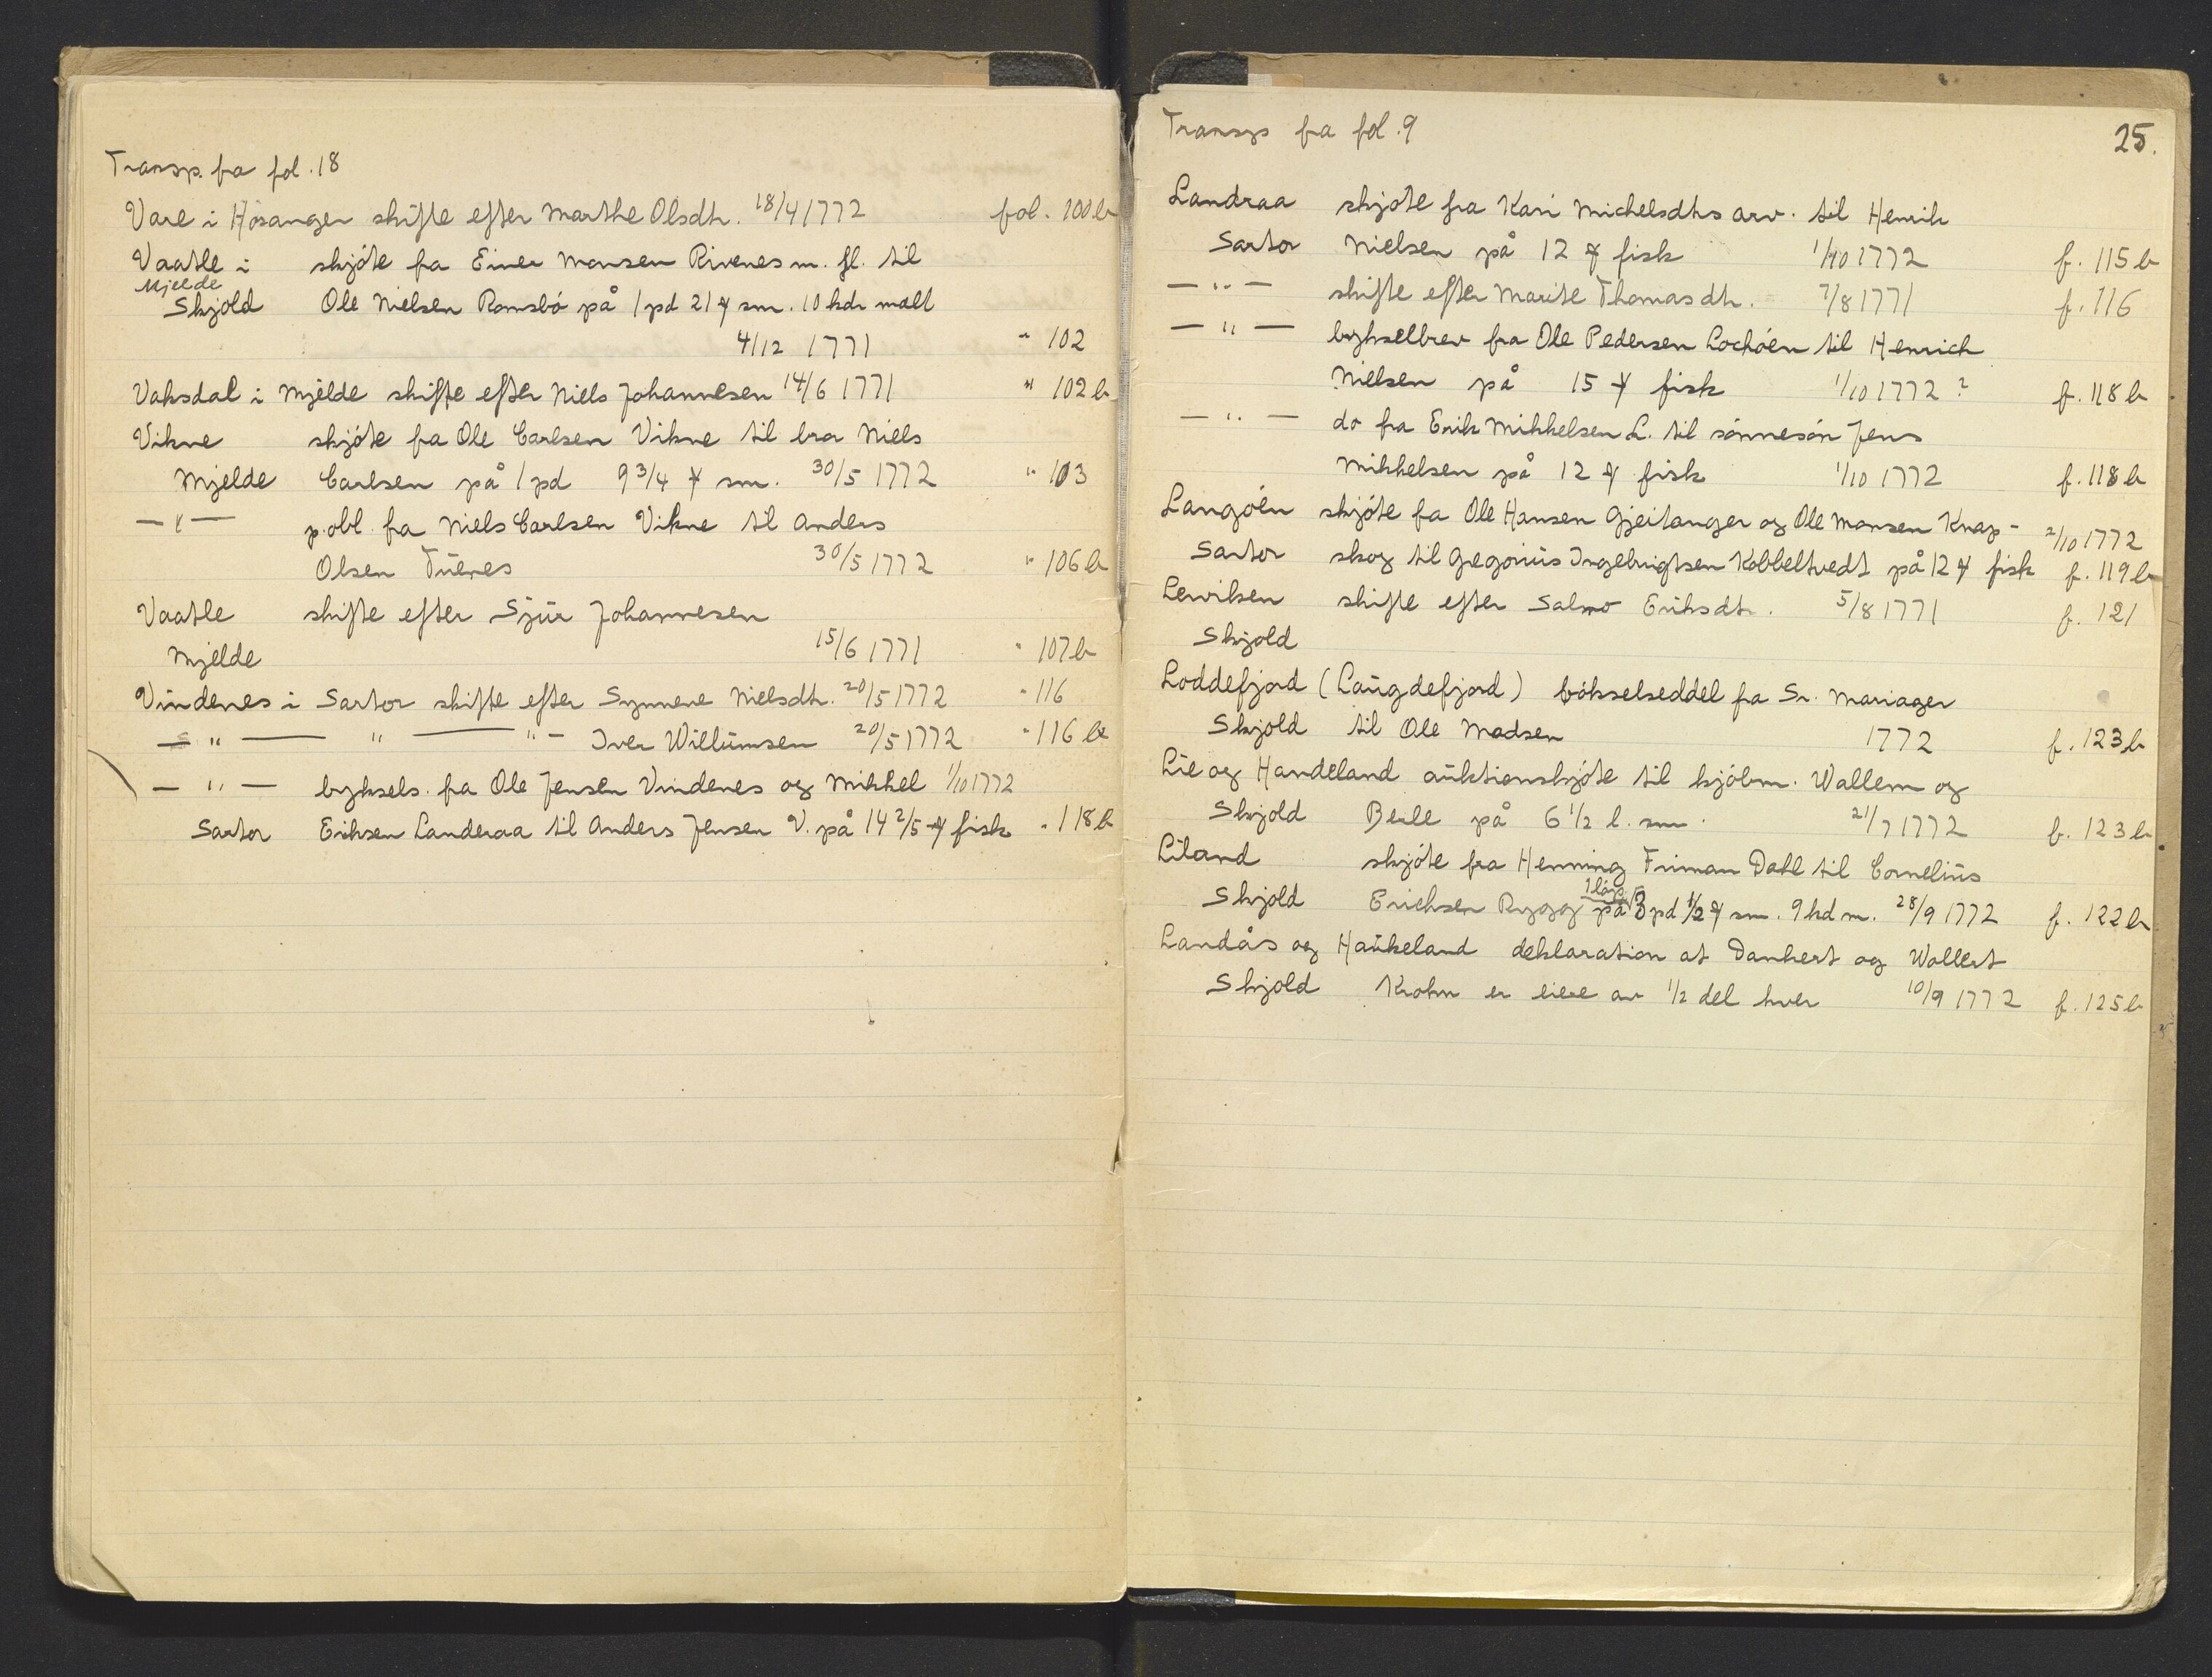 Transp. fra fol. 18
Vare i Hósanger skifte efter Marthe Olsdtr. 18/4 1772 fol. 100 b
Vaatle i skjóte fra Einer Monsen Rivenes m. fl. til
Mjelde
Skjold Ole Nielsen Romsbó på 1 pd 21 ℔ sm. 10 kdr malt
4/12 1771 " 102
Vaksdal i Mjelde skifte efter Niels Johannesen 14/6 1771 " 102 b
Vikne skjóte fra Ole Carlsen Vikne til bror Niels
Mjelde Carlsen på 1 pd 9 3/4 ℔ sm. 30/5 1772 " 103
— " — p.obl. fra Niels Carlsen Vikne til Anders
Olsen Tüenes 30/5 1772 " 106 b
Vaatle skifte efter Sjür Johannesen
Mjelde 15/6 1771 " 107 b
Vindenes i Sartor skifte efter Synneve Nielsdtr. 20/5 1772 " 116
— " — " — " — Iver Willümsen 20/5 1772 " 116 b
— " — byksels. fra Ole Jensen Vindenes og Mikkel 1/10 1772
Sartor Eriksen Landeraa til Anders Jensen V. på 14 2/5 ℔ fisk " 118 b
Transp fra fol. 9
25.
Landraa skjóte fra Kari Michelsdtrs arv. til Henrik
Sartor Nielsen på 12 ℔ fisk 1/10 1772 f. 115 b
— " — skifte efter Marite Thomasdtr. 7/8 1771 f. 116
— " — bykselbrev fra Ole Pedersen Lochóen til Henrich
Nielsen på 15 ℔ fisk 1/10 1772 ? f. 118 b
— " — do fra Erik Mikkelsen L. til sónnesón Jens
Mikkelsen på 12 ℔ fisk 1/10 1772 f. 118 b
Langóen skjóte fra Ole Hansen Gjeitanger og Ole Monsen Knap- 2/10 1772
Sartor skog til Gregoriüs Ingebrigtsen Kobbeltvedt på 12 ℔ fisk f. 119 b
Lerviken skifte efter Salmo Eriksdtr. 5/8 1771 f. 121
Skjold
Loddefjord (Laügdefjord) bókselseddel fra Sr. Mariager
Skjold til Ole Madsen 1772 f. 123 b
Lie og Handeland auktionskjóte til kjóbm. Wallem og
Skjold Berle på 6 1/2 l. sm. 21/7 1772 f. 123 b
Liland skjóte fra Henning Friman Dahl til Corneliüs
1 lóp
Skjold Erichsen Rygg på 3 pd 1/2 ℔ sm. 9 kd m. 28/9 1772 f. 122 b
Landås og Haükeland deklaration at Dankert og Wollert
Skjold Krohn er eiere av 1/2 del hver 10/9 1772 f. 125 b